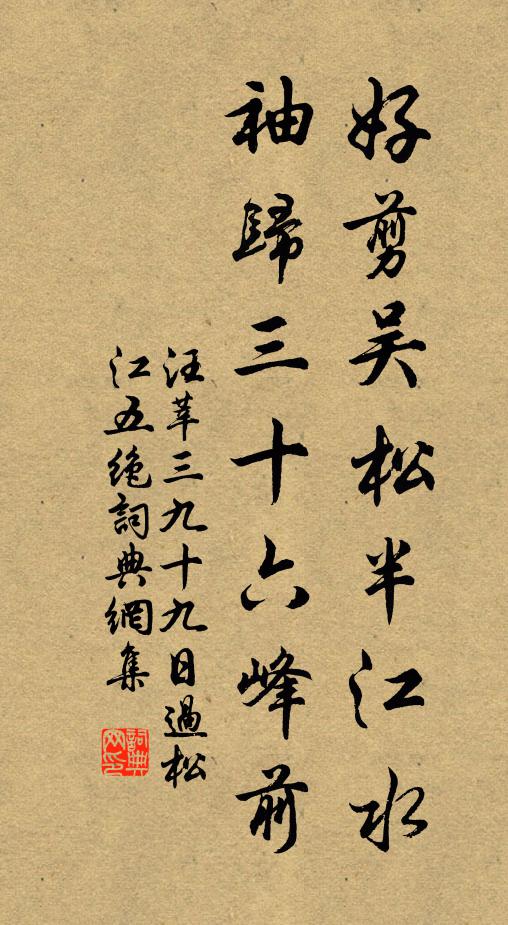 好剪吴松半江水
袖歸三十六峰前
汪莘三九十九日過松
江五絶詞典網集
詞典
网印